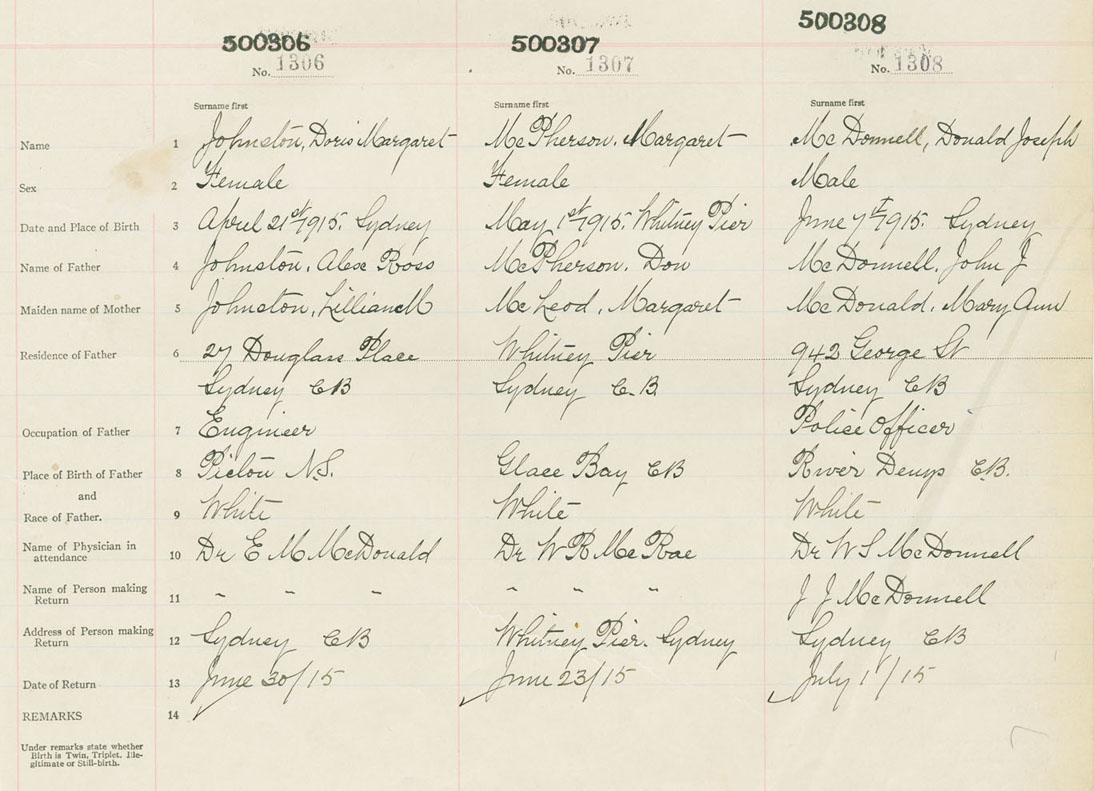 500306 500307 500308
No. 1306 No. 1307 No. 1308
Surname first Surname first Surname first
Name 1 Johnston, Doris Margaret McPherson, Margaret McDonnell, Donald Joseph
Sex 2 Female Female Male
Date and Place of Birth 3 April 21st 1915. Sydney May 1st 1915. Whitney Pier June 7th 1915. Sydney
Name of Father 4 Johnston, Alex Ross McPherson, Don McDonnell, John J
Maiden name of Mother 5 Johnston, Lillian M McLeod, Margaret McDonald, Mary Ann
Residence of Father 6 27 Douglass Place Whitney Pier 942 George St
Sydney CB Sydney C.B. Sydney CB
Occupation of Father 7 Engineer Police Officer
Place of Birth of Father 8 Pictou N.S. Glace Bay CB River Denys C.B.
and
Race of Father. 9 White White White
Name of Physician in
attendance 10 Dr E M McDonald Dr W R McRae Dr W S McDonnell
Name of Person making
Return 11 " " " " " " J J McDonnell
Address of Person making
Return 12 Sydney CB Whitney Pier. Sydney Sydney CB
Date of Return 13 June 30/15 June 23/15 July 1/15
REMARKS 14
Under remarks state whether
Birth is Twin, Triplet, Ille-
gitimate or Still-birth.